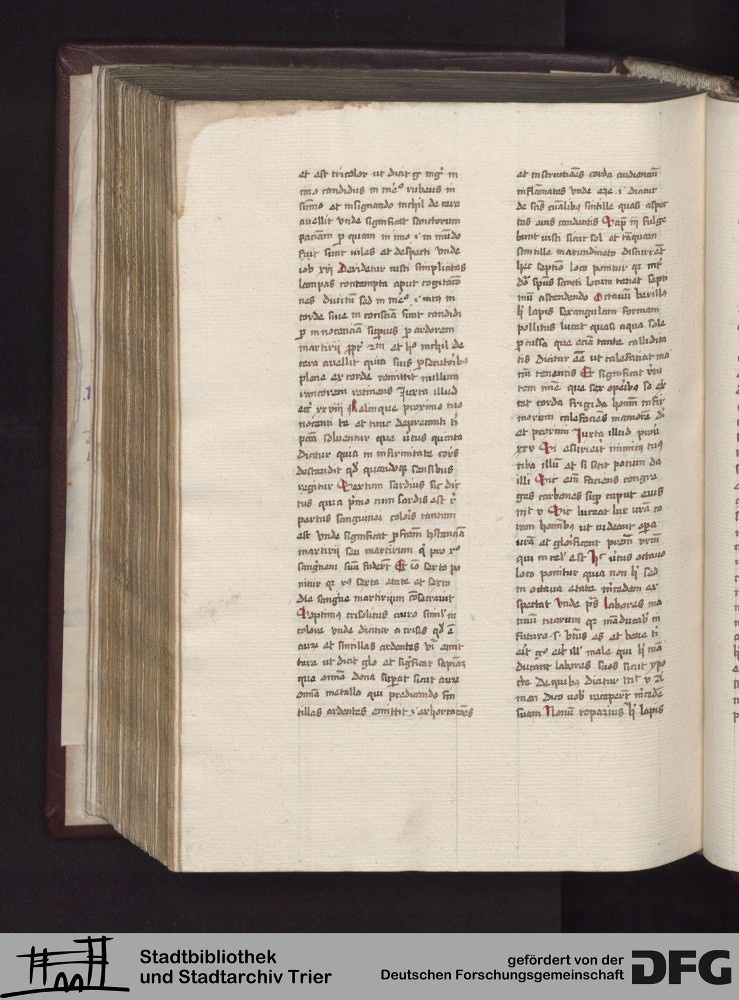 et est tricolor ut dicit g mgr in
imo candidus in meo rubeus in
sumo et in signando nichil de cera
auellit vnde significat sanctorum
paciam p quam in imo i in mudo
fuit sunt viles et despecti vnde
iob xvi Deridetur iusti simplicitas
lampas contempta aput cogitaco
nes diuitu sed in meo i intus in
corde siue in consciā sunt candidi
p innocenciā superius p ardorem
martirii et nichil de
cera auellit quia suis psecutoribus
plane ex corde remittit nullum
rancorem retinens Iuxta illud
ecci xxviii Relinque proximo tuo
nocenti te et tunc deprecanti ti
pcca soluentur que virtus quinta
dicitur quia in infirmitate cordis
descendit quandoque sensibus
regitur Sextum sardius sic dic
tus quia primo cum sardis est
pertus sanguinei coloris tantum
est vnde significat
martirii seu martirum q pro xpo
sanguinem suu fuderut Et io sexto po
nitur q xps sexta etate et sexto
die sanguine martirium consecrauit
Septimus crisolitus auro simil in
colore vnde dicitur a crisis qd e
aure et sintillas ardentes emit
tere ut dicit glo et significat sapiam
que omnia dona superat sicut aure
omnia metalla qui predicando sin
tillas ardentes emittit i exhortacoes
et instructioes corda audientium
inflamates vnde eze i dicitur
de scis sintille quasi aspec
tus eris candentis Sap iii fulge
bunt iusti sicut sol et tanquam
scintille in arundineto discurret
hec septimo loco ponitur
donum spus sancti locum tenet septi
mu ascendendo Octauum berillus
hic lapis sexangulam formam
pollitus lucet quasi aqua sole
percussa que etiam tante callidita
tis dicitur ee ut calefaciat ma
num tenentis Et significat virtu
tem que sex operibus se ex
tat corda frigida hominum infir
morum calefaciens in amore di
et proximi Iuxta illud prou
xxv Si esurierit inimicus tuus
ciba illum et si sitit potum da
illi Sic eim faciens congre
ges carbones super caput eius
mt v Sic luceat lux vra co
ram hominibus ut videant opera
vra et glorificent prem vrm
qui in celis est Hec virtus octauo
loco ponitur quia non hic sed
in octaua etate mercedem ex
spectat vnde ps labores ma
nuum tuarum q manducabis in
futuro s btus es et bene ti
erit go erit illis male qui hic man
ducant labores suos sicut ypo
crite de quibus dicitur mt vi
men dico vob receperut mercede
suam Nonus topazius hic lapis
Stadtbibliothek
und Stadtarchiv Trier
gefördert von der
Deutschen Forschungsgemeinschaft
DFG